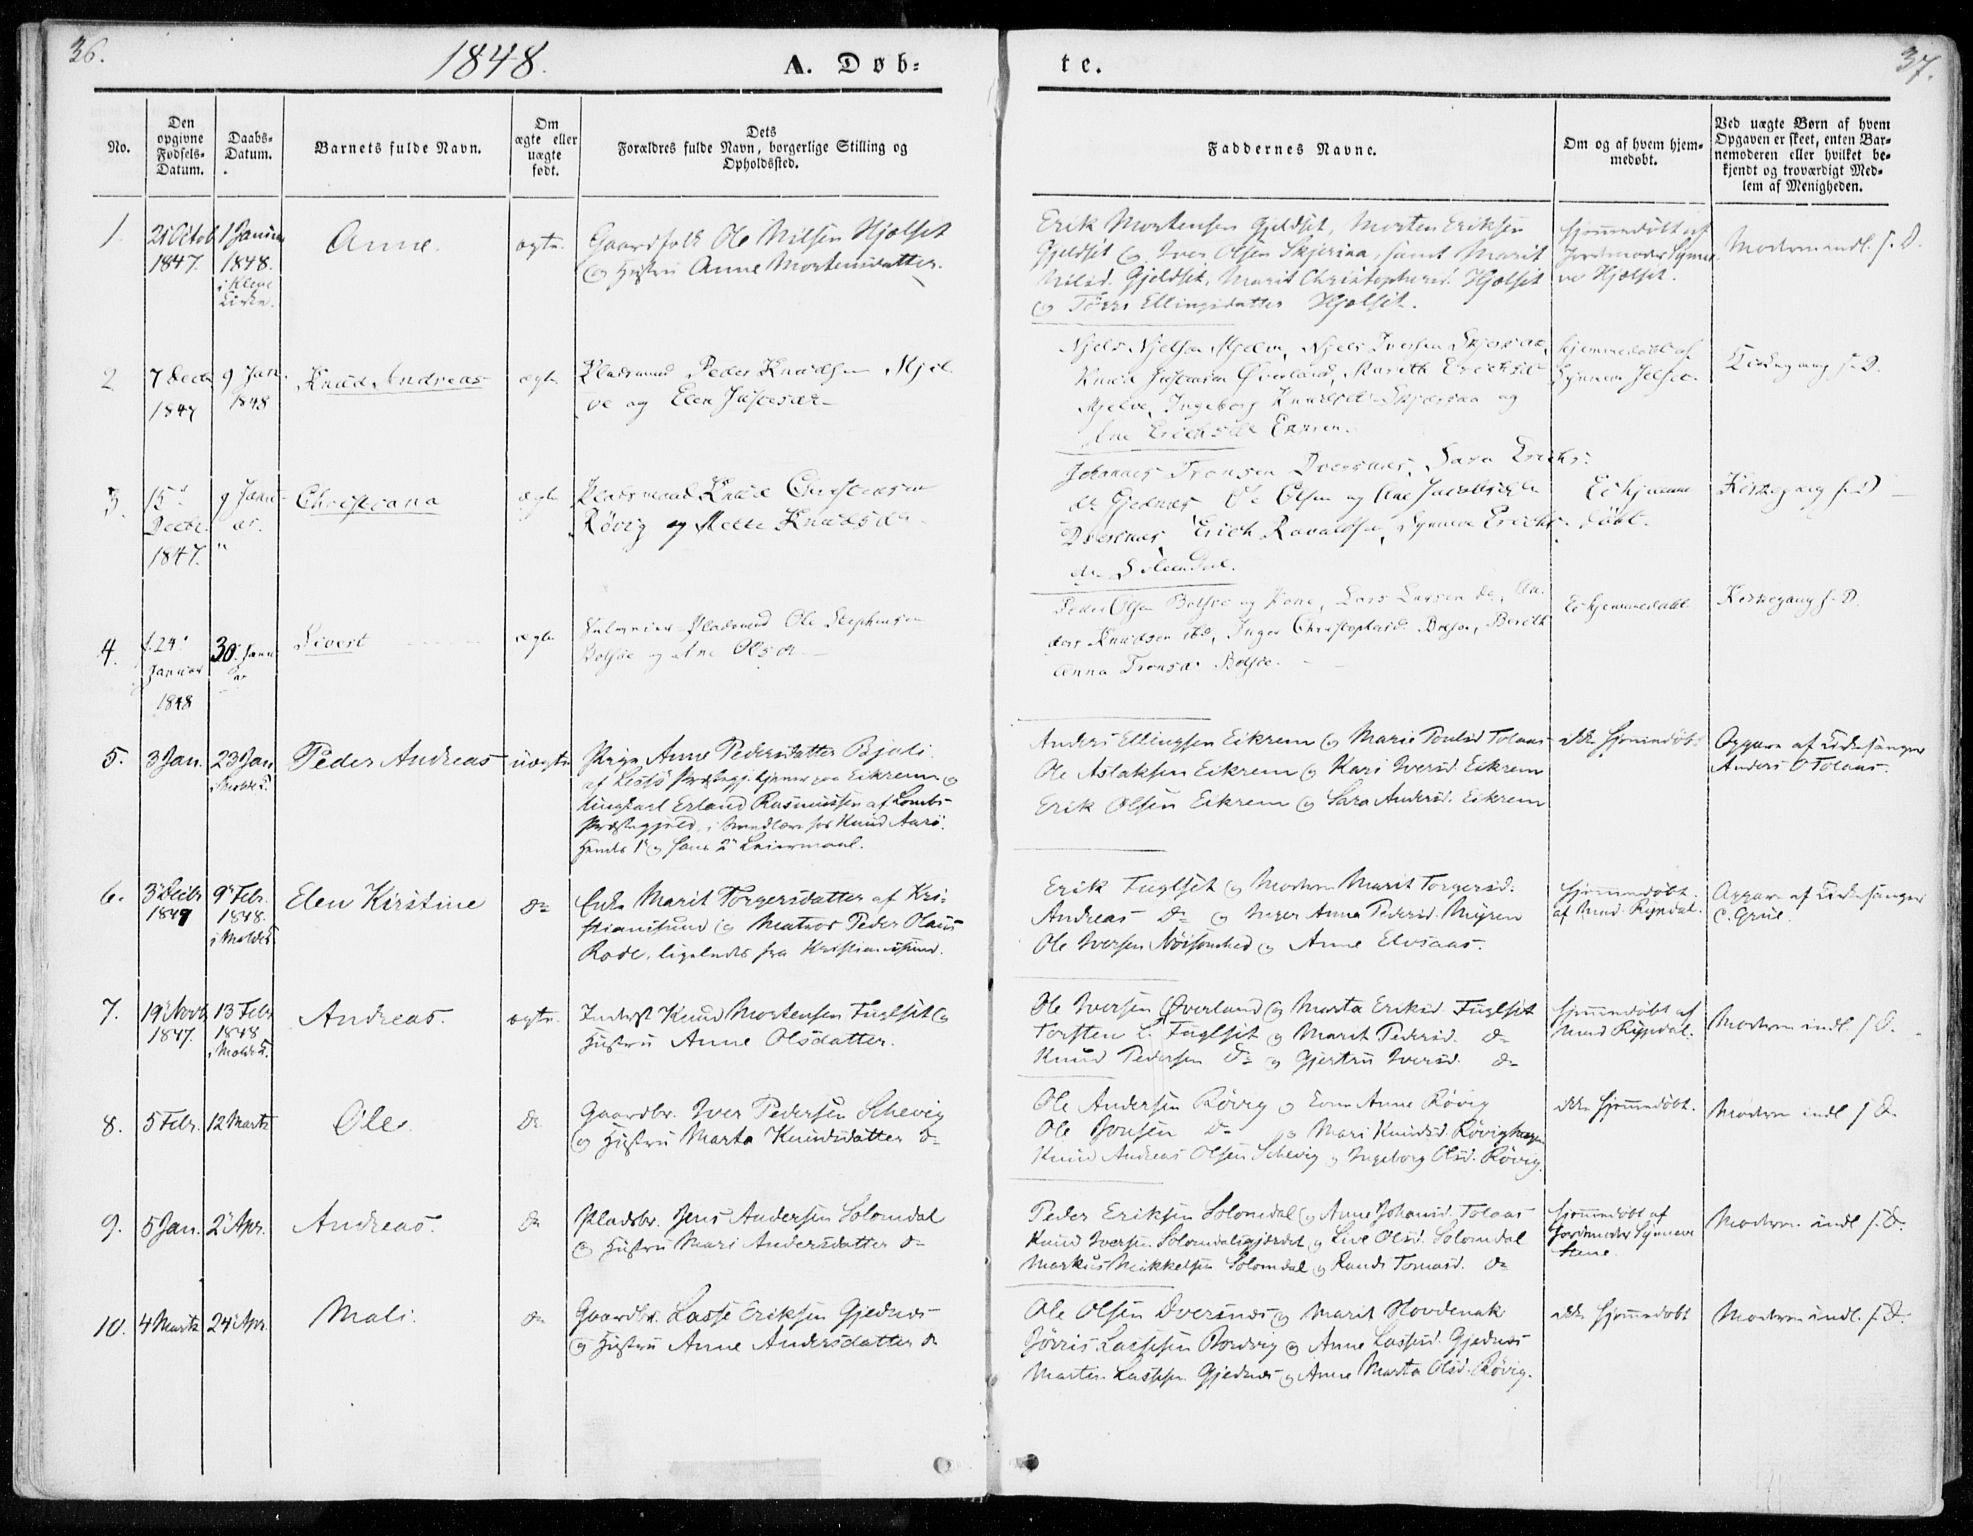 36.
1848.
A. Døb-
te.
37.
No.
Den opgivne Fødsels-Datum.
Daabs-Datum.
Barnets fulde Navn.
Om ægte eller uægte født.
Dets
Forældres fulde Navn, borgerlige Stilling og
Opholdssted.
Faddernes Navne.
Om og af hvem hjem-
medøbt.
Ved uægte Børn af hvem
Opgaven er skeet, enten Bar-
nemoderen eller hvilket be-
kjendt og troværdigt Med-
lem af Menigheden.
1. 21 Octob 1847. 1 Januar 1848. i Kleve Kirke. Anne. ægte.
Gaardfolk Ole Nilsen Hjelset
og Hustru Anne Mortensdatter.
Erik Mortensen Gjeldset, Morten Eriksen
Gjeldset og Iver Olsen Skjersaa, samt Marit
Nilsd. Gjeldset, Marit Christophersd. Hjelset
og Ellingsdatter Hjelset.
hjemmedøbt af
Jordmoder Synne-
ve Hjelset.
Moderen indl. s. D.
2 7 Decb 1847 9 Jan. 1848 Knud Andreas ægte
Pladsmand Peder Knudsen Mjel-
ve og Elen
Knud Øverland, Marith Ericksd
Mjelve, Ingeborg Knudsd Skjersaa og
Ane Ericksd
hjemmedøbt af
Synneve Jelset.
Kirkegang s. D.
3. 15 Decbr. 1847. 9 Janu-ar. " Christiana ægte
Pladsmand Knud Christensen
Røvig og Mette Knudsdr
Johannes Tronsen Dversnes, Sara Erichs-
dr Gjednes, Ole Olsen og Ane
Dversnes, Erich Ravaldsen, Synneve Erichs-
dr Solemdal.
Ei hjemme
døbt.
Kirkegang s. D
4. d. 24 Januar 1848 30 Janu-ar Sivert ægte
Pladsmand Ole Stephensen
Bolsøe og Ane Olsdr
Peder Olsen Bolsøe og Kone, Lars Larsen do, An-
ders Knudsen ibd, Inger Christophersd. Bolsøe, Berith
Anna Tronsd. Bolsøe.
Ei hjemmedøbt
Kirkegang s. D.
5. 3 Jan. 23 Jan i Molde K. Peder Andreas uægte
Pige Anne Pedersdatter Bjøli
af Lessø Præstegj. tjener paa Eikrem og
Ungkarl Erland Rasmussen af Lombs-
Præstegjeld, i for Knud Aarø.
Hendes 1ste og hans 2det Leiermaal.
Anders Ellingsen Eikrem og Marie Poulsd Tolaas
Ole Aslaksen Eikrem og Kari Iversd. Eikrem
Erik Olsen Eikrem og Sara Andersd. Eikrem
ikke hjemmedøbt
Opgave af Kirkesanger
Anders O Tolaas.
6. 3 Decbr 1847 9 Febr. 1848. i Molde K Elen Kirstine do
Enke Marit Torgersdatter af Kri-
stianssund og Matros Peder Olaus
Rode, ligeledes fra Kristianssund.
Erik Fuglset og Moderen Marit Torgersd.
Andreas do og Anne Pedersd. Myren
Ole Iversen og Anne Elvsaas.
hjemmedøbt.
af Knud Rypdal.
Opgave af Kirkesanger
C. Grüe.
7. 19 Novb 1847. 13 Febr 1848 i Molde K. Andreas. ægte.
Inderst Knud Mortensen Fuglset og
Hustru Anne Olsdatter.
Ole Iversen Øverland og Marta Eriksd. Fuglset
Torsten L. Fuglset og Marit Pedersd. do
Knud Pedersen do og Gjertru Iversd. do
hjemmedøbt af
Knud Rypdal.
Moderen indl. s. D.
8. 5 Febr. 12 Marts Ole. do.
Gaardbr. Iver Pedersen Schevig
og Hustru Marta Knudsdatter do
Ole Andersen Røvig og Anne Røvig
Ole Jonsen do og Mari Knudsd. Røvighagen
Knud Andreas Olsen Schevig og Ingeborg Olsd. Røvig.
ikke hjemmedøbt.
Moderen indl s D.
9. 5 Jan. 2 Apr. Andreas. do
Pladsbr. Jens Andersen Solomdal
og Hustru Mari Andersdatter do
Peder Eriksen Solomdal og Anne Johansd. Tolaas
Knud Iversen Solomdalsgjærdet og Live Olsd. Solomdal
Markus Mikkelsen Solomdal og Randi Tomasd. do
hjemmedøbt af
Jordmoder Synneve
Moderen indl s. D.
10. 4 Marts 24 Apr. Mali. do
Gaardbr. Lasse Eriksen Gjednes
og Hustru Anne Andersdatter do
Ole Olsen Dversnes og Marit Hovdenak
Jørris Lassesen Bordvig og Anne Lassesd. Gjednes
Morten Lassesen Gjednes og Anne Marta Olsd. Røvig.
ikke hjemmedøbt
Moderen indl. s. D.